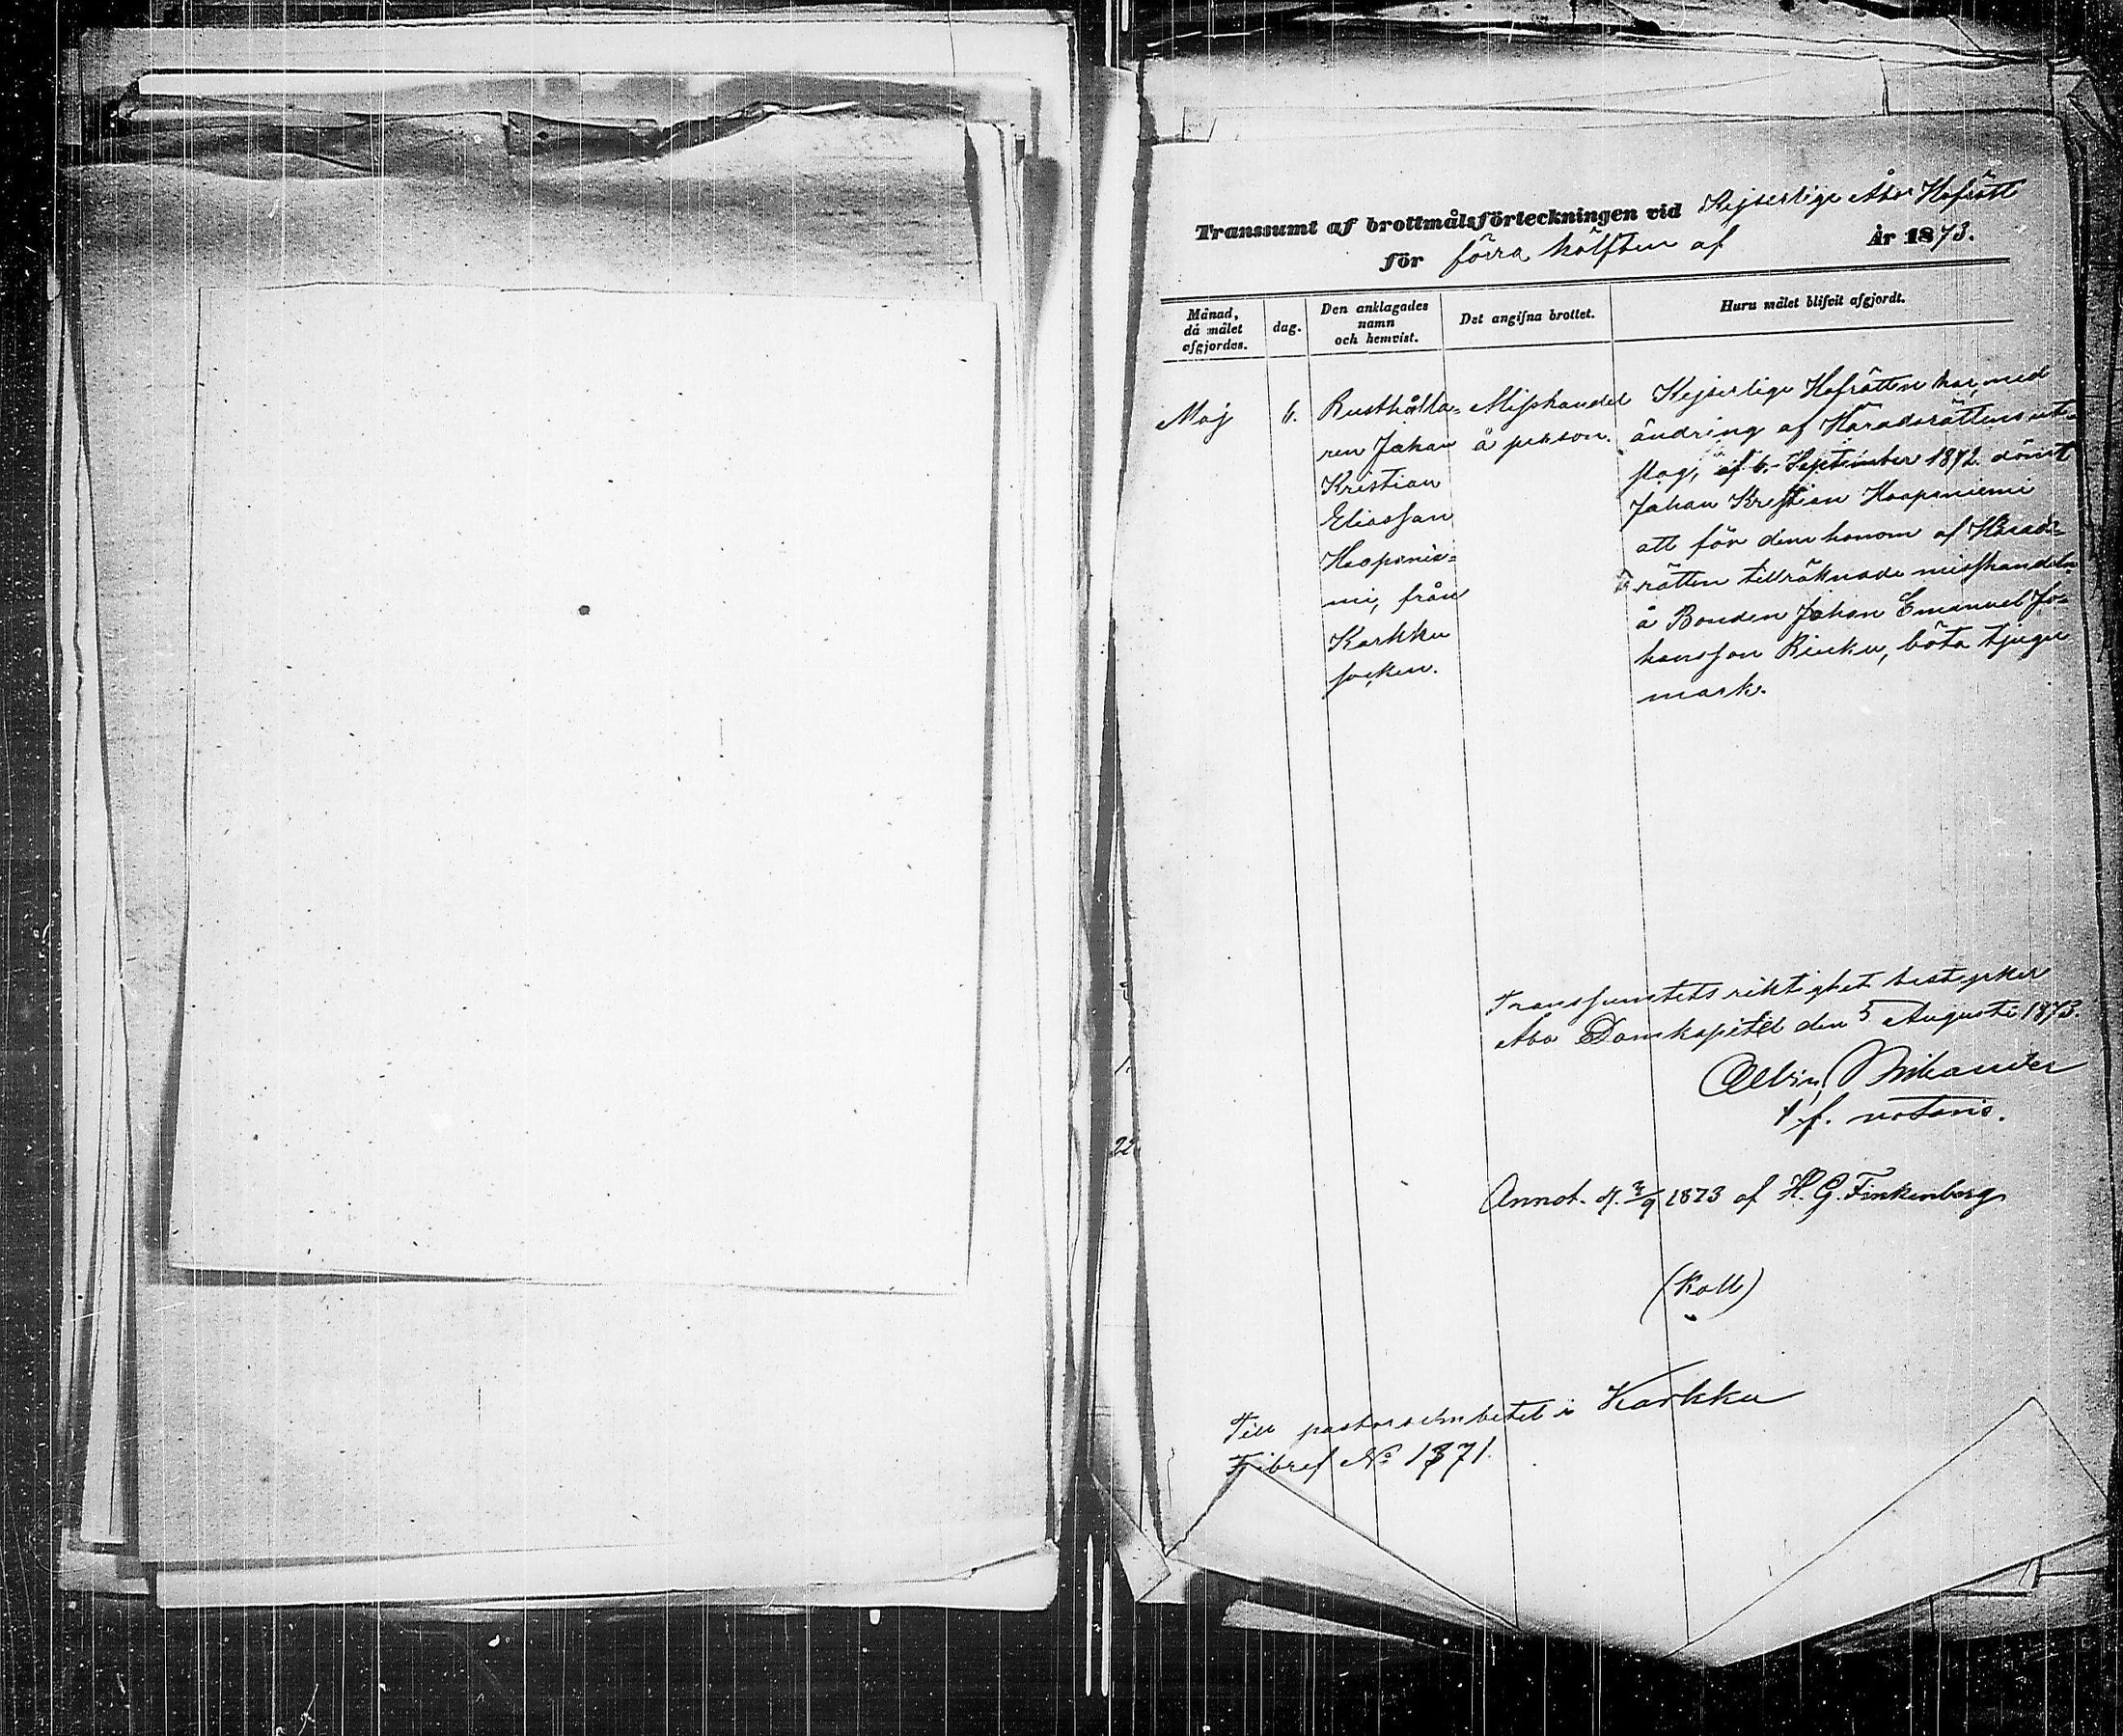 Transsumt af brottmålsförteckningen vid Kejserlige Åbo Hofrätt
för förra hälften af År 1873.
Månad, då målet afgjordes.
dag.
Den anklagades namn och hemvist.
Det angifna brottet.
Huru målet blifvit afgjordt.
Maj
6.
Rusthålla=
ren Johan
Kristian
Eliasson
Haapanie=
mi, från
Karkku
socken.
Misshandel
å person.
Kejserlige Hofrätten har, med
ändring af Häradsrättens ut=
slag, af 6. September 1872 dömt
Johan Kristian Haapaniemi
att för den honom af Härads=
rätten tillräknade misshandeln
å Bonden Johan Emanuel Jo=
hansson Rienku, böta tjugu
mark.
Transsumtets riktighet bestyrker
Åbo Domkapitel den 5 Augusti 1873.
Albin Mikander
t.f. notarie.
Annot. d. /9 1873 af H. G. Finkenberg
(Koll)
Till pastorsembetet i Karkku
Tjbref No 1371.
22